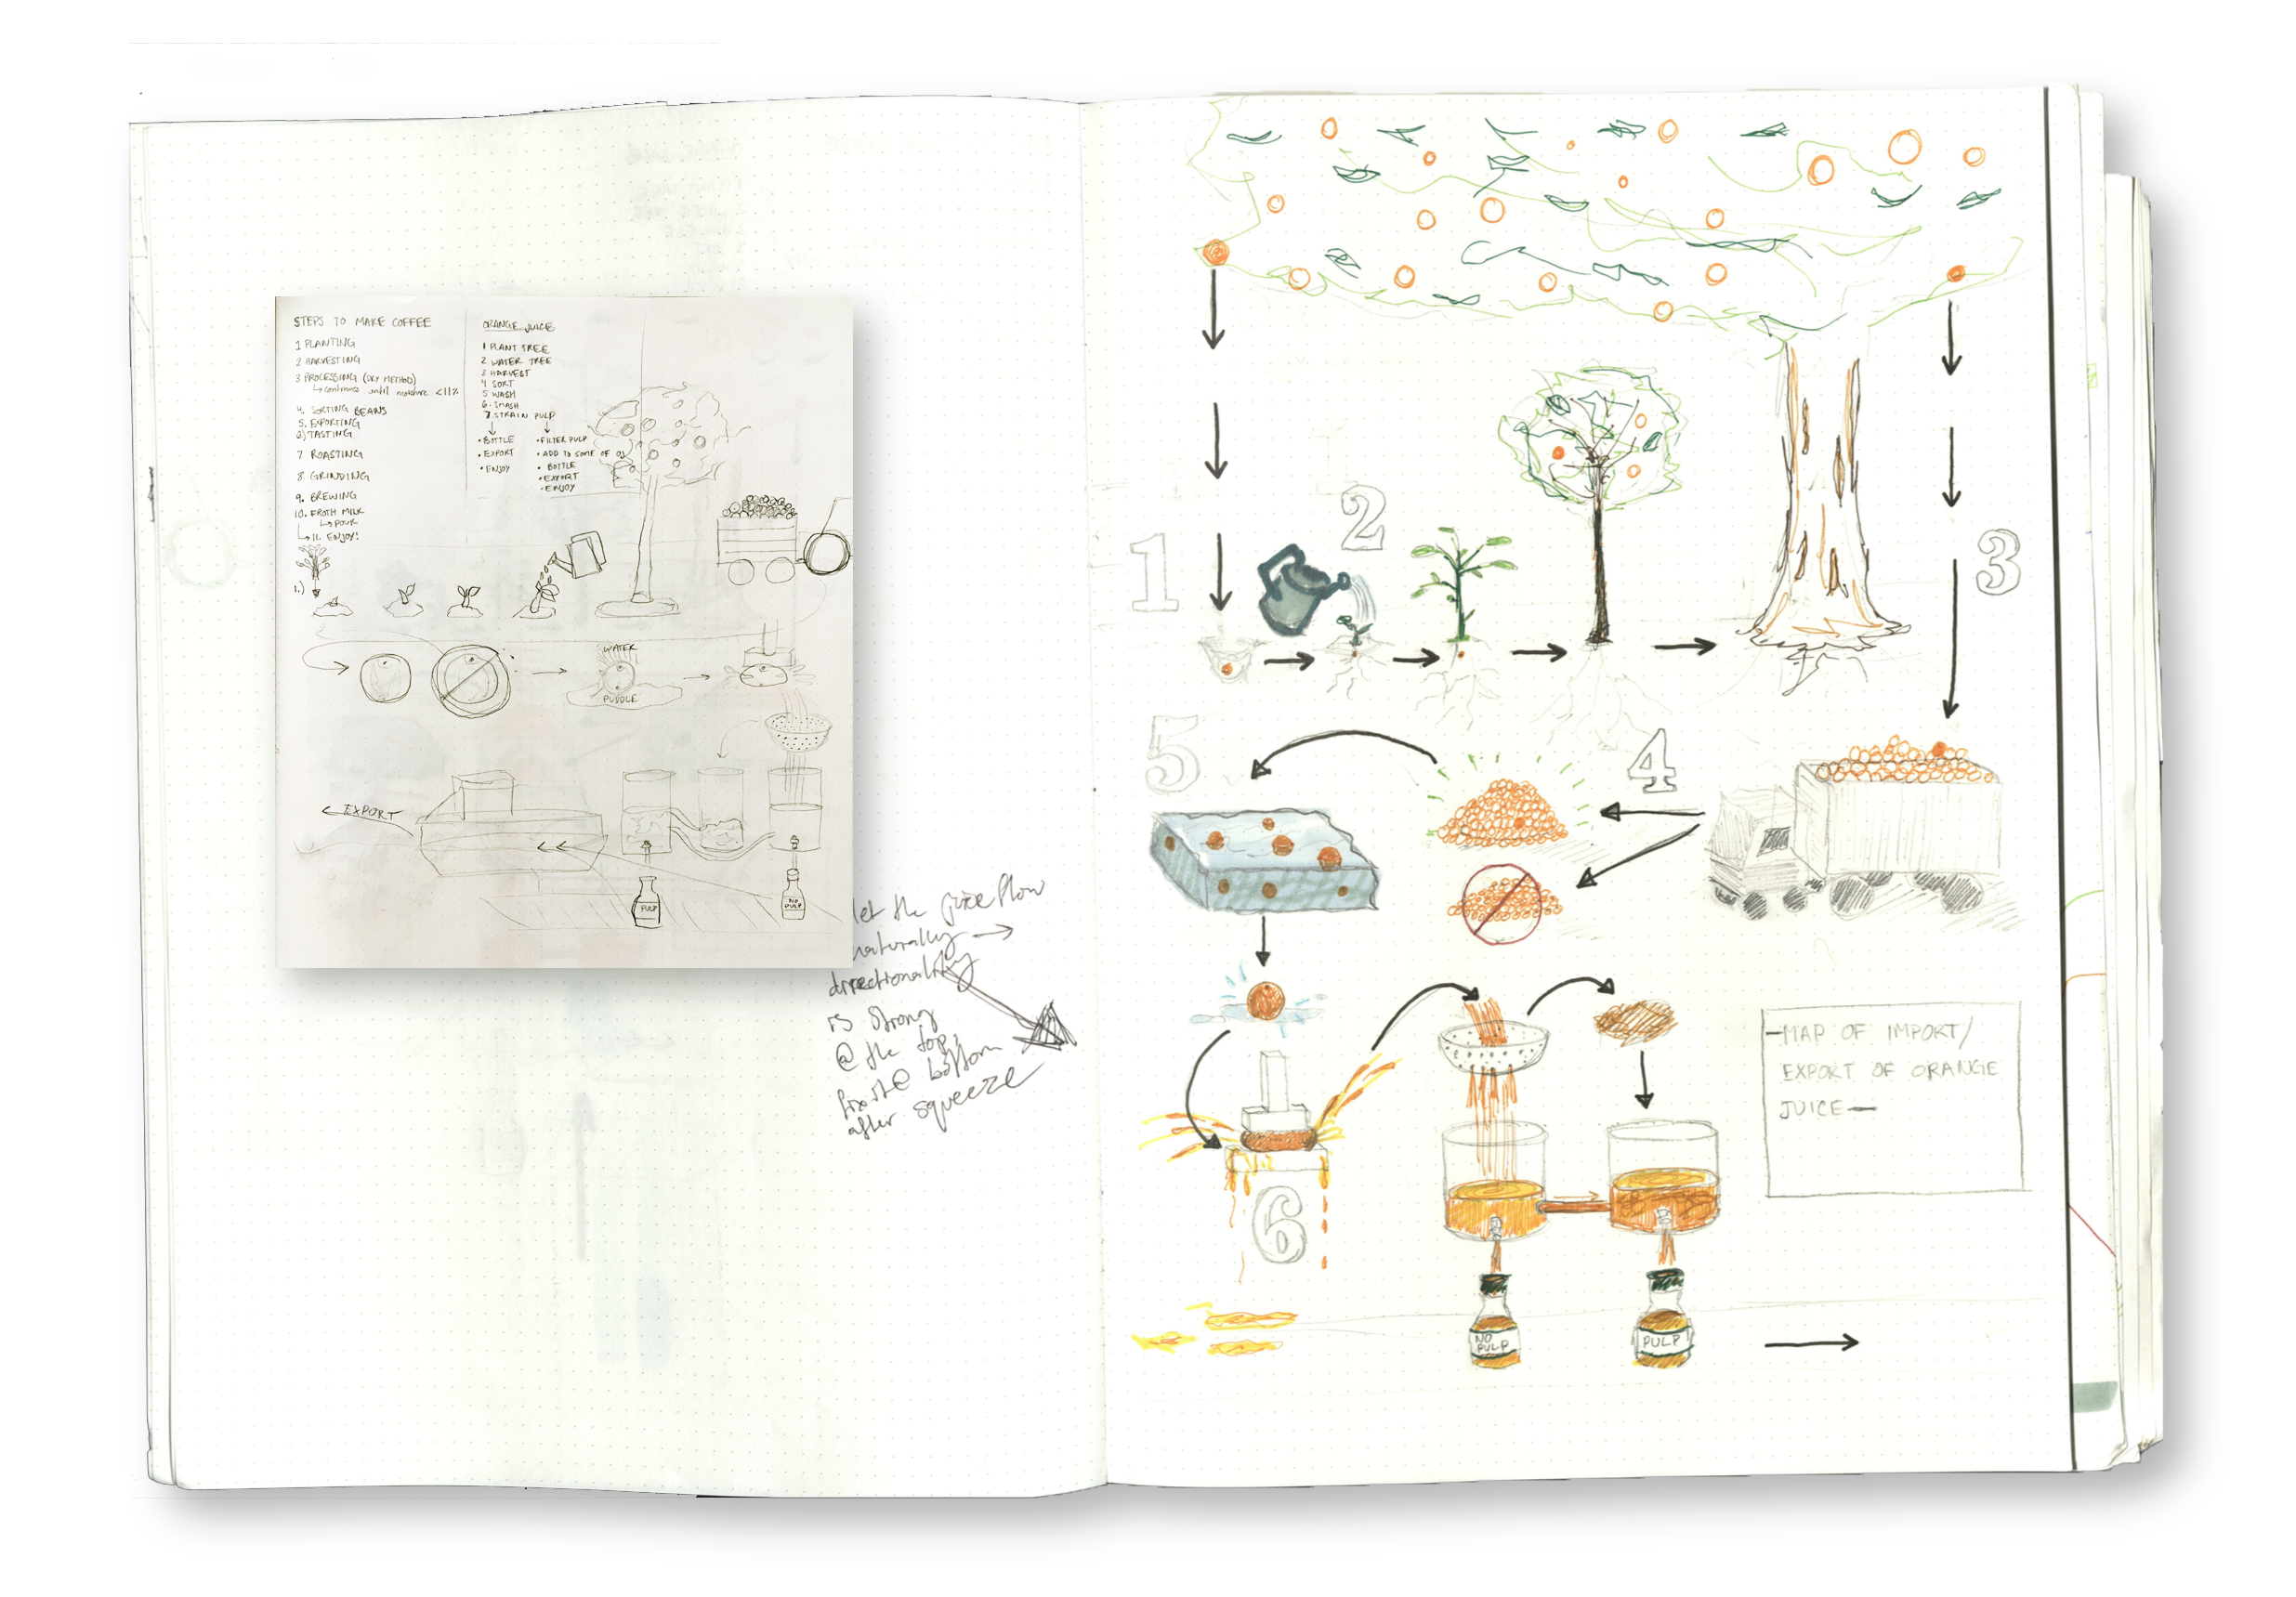 STEPS TO MAKE COFFEE
1 PLANTING
2 HARVESTING
3 PROCESSING (DRY METHOD)
↳ continue until moisture <11%
4. SORTING BEANS
5. EXPORTING
6) TASTING
7 ROASTING
8 GRINDING
9. BREWING
10. FROTH MILK
↳ POUR
↳ 11. ENJOY!
1.)
ORANGE JUICE
1 PLANT TREE
2 WATER TREE
3 HARVEST
4 SORT
5 WASH
6. SMASH
7 STRAIN PULP
• BOTTLE
• EXPORT
• ENJOY
• FILTER PULP
• ADD TO SOME OF OJ
• BOTTLE
• EXPORT
• ENJOY
WATER
PUDDLE
EXPORT
PULP
NO
PULP
let the juice flow
naturally →
directionality
is strong
@ the top,
fix it @ bottom
after squeeze
1
2
3
4
5
6
—MAP OF IMPORT/
EXPORT OF ORANGE
JUICE—
NO
PULP
PULP